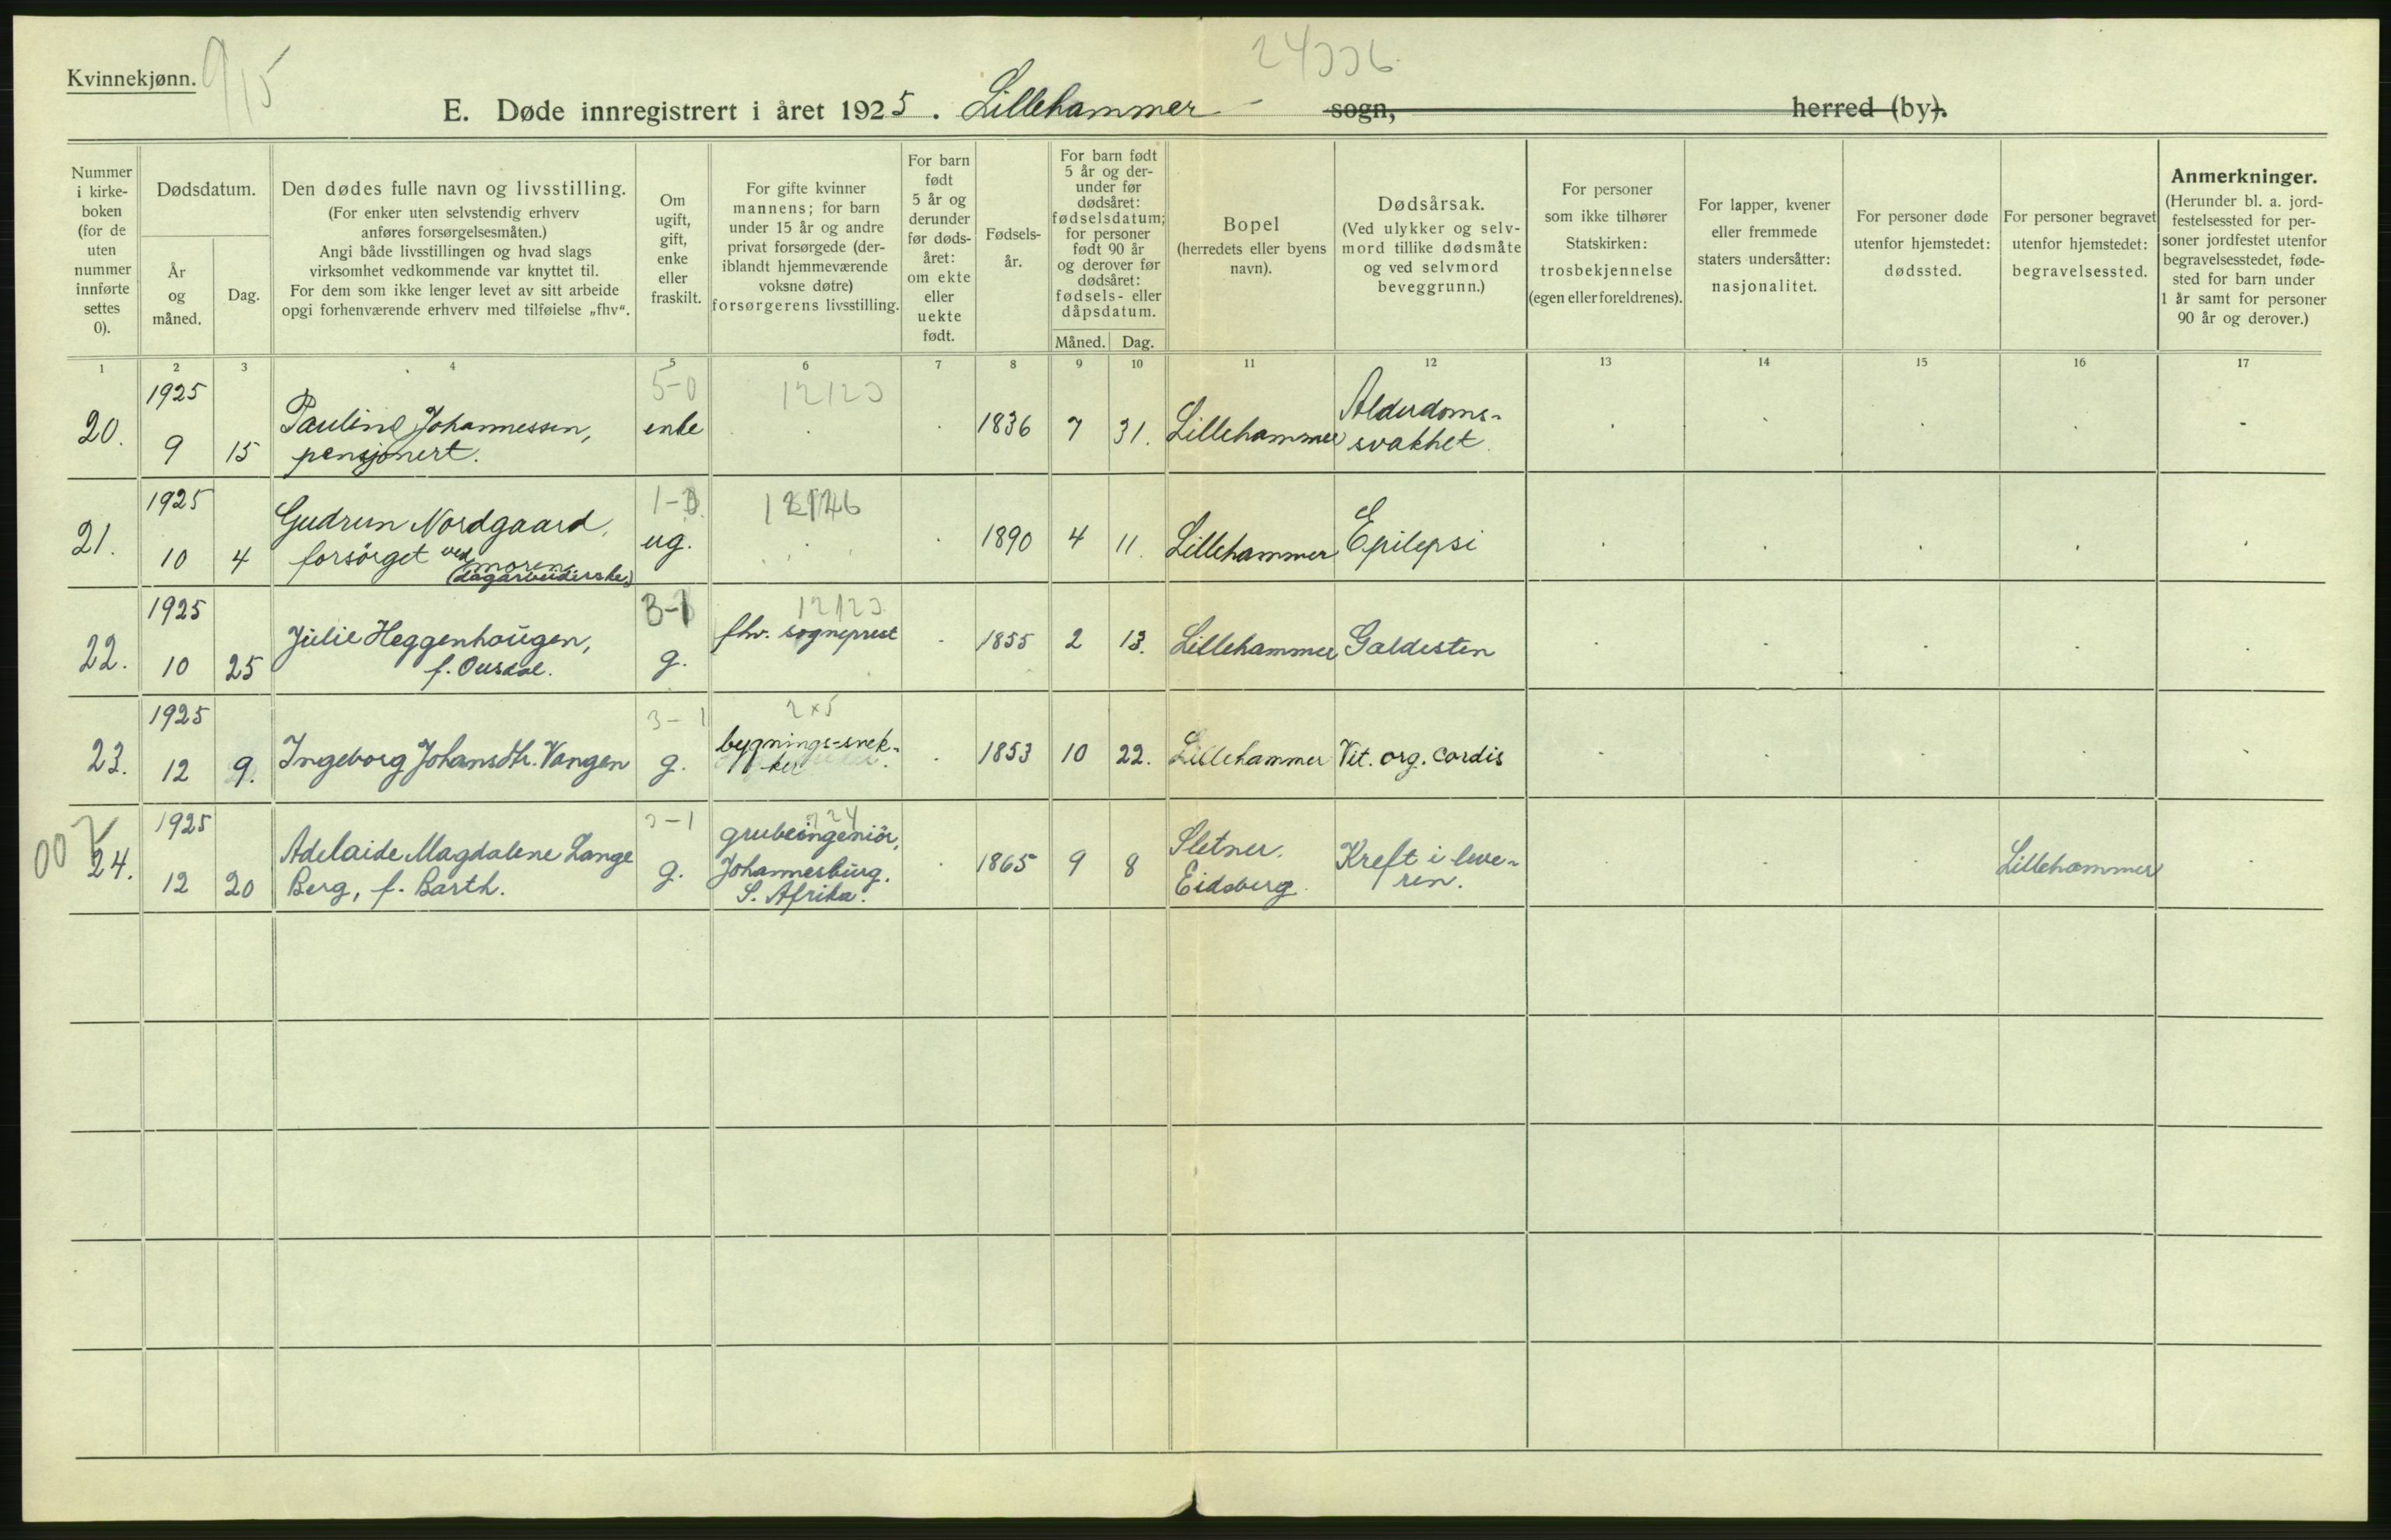 Kvinnekjønn.
9/15
24336
E. Døde innregistrert i året 1925. Lillehammer sogn, herred (by).
Nummer i kirke-boken (for de uten nummer innførte settes 0).
Dødsdatum.
År og måned.
Dag.
Den dødes fulle navn og livsstilling.
(For enker uten selvstendig erhverv
anføres forsørgelsesmåten.)
Angi både livsstillingen og hvad slags
virksomhet vedkommende var knyttet til.
For dem som ikke lenger levet av sitt arbeide
opgi forhenværende erhverv med tilføielse „fhv“.
Om ugift, gift, enke eller fraskilt.
For gifte kvinner
mannens; for barn
under 15 år og andre
privat forsørgede (der-
iblandt hjemmeværende
voksne døtre)
forsørgerens livsstilling.
For barn født 5 år og derunder før døds-året: om ekte eller uekte født.
Fødsels-år.
For barn født
5 år og der-
under før
dødsåret:
fødselsdatum;
for personer
født 90 år
og derover før
dødsåret:
fødsels- eller
dåpsdatum.
Måned. Dag.
Bopel
(herredets eller byens
navn).
Dødsårsak.
(Ved ulykker og selv-
mord tillike dødsmåte
og ved selvmord
beveggrunn.)
For personer
som ikke tilhører
Statskirken:
trosbekjennelse
(egen eller foreldrenes).
For lapper, kvener
eller fremmede
staters undersåtter:
nasjonalitet.
For personer døde
utenfor hjemstedet:
dødssted.
For personer begravet
utenfor hjemstedet:
begravelsessted.
Anmerkninger.
(Herunder bl. a. jord-
festelsessted for per-
soner jordfestet utenfor
begravelsesstedet, føde-
sted for barn under
1 år samt for personer
90 år og derover.)
1 2 3 4 5 6 7 8 9 10 11 12 13 14 15 16 17
1925 5-0
20. 9 15 Pauline Johannessen, enke 1836 7 31. Lillehammer Alderdoms-
pensjonert. svakhet.
1925
21. 10 4 Gudrun Nordgaard, ug. 1890 4 11. Lillehammer Epilepsi
forsörget ved moren
(dagarbeiderske)
1925 3-1
22. 10 25 Julie Heggenhougen, g. fhv. sogneprest 1855 2 13. Lillehammer Galdesten
f. Ousdal.
1925 3-1 2x5
23. 12 9. Ingeborg Johansdtr. Vangen g. bygnings-snek- 1853 10 22. Lillehammer Vit. org. cordis
ker
1925
00 24. 12 20 Adelaide Magdalene Lange g. grubeingeniör, 1865 9 8 Sletner. Kreft i leve- Lillehammer
Berg, f. Barth. Johannesburg. Eidsberg. ren.
S. Afrika.